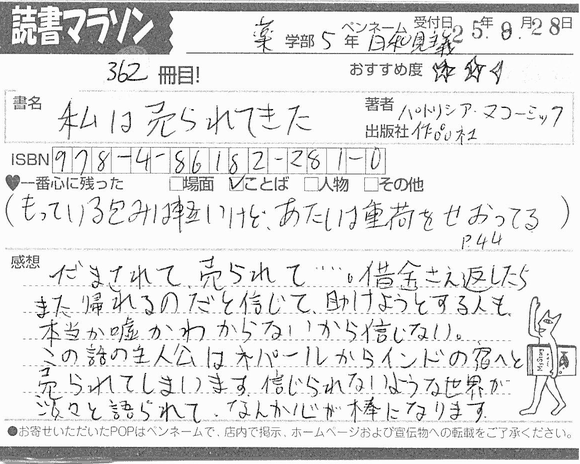 読書マラソン
薬 学部 5 年 ペンネーム 日和見主義 受付日 25年 9月 28日
362 冊目! おすすめ度 ☆☆☆
書名 私は売られてきた
著者 パトリシア・マコーミック
出版社 作品社
ISBN 978-4-86182-281-0
♥一番心に残った □場面 ☑ことば □人物 □その他
(もっている包みは軽いけど、あたしは重荷をせおってる)
P.44
感想
だまされて、売られて….。借金さえ返したら
また帰れるのだと信じて、助けようとする人も、
本当か嘘かわからないから信じない。
この話の主人公はネパールからインドの宿へと
売られてしまいます。信じられないような世界が
淡々と語られて、なんか心が棒になります。
●お寄せいただいたPOPはペンネームで、店内で掲示、ホームページおよび宣伝物への転載をご了承ください。